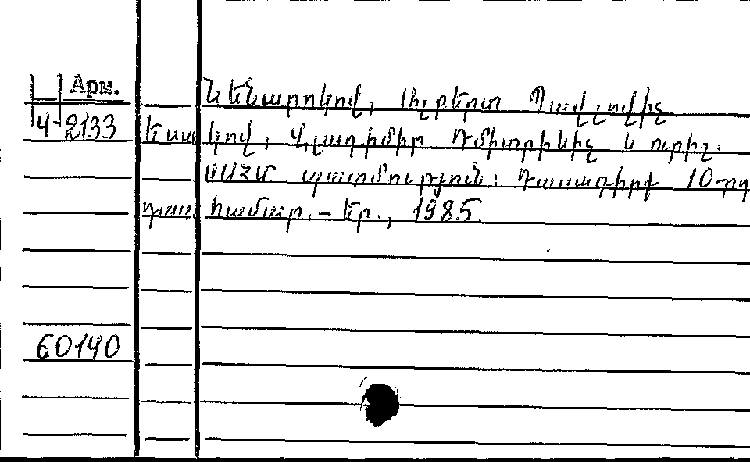 Арм.
Նենարոկով, Ալբերտ Պավլովիչ
4-2133
Եսակով, Վլադիմիր Դմիտրիևիչ և ուրիշ.
ՍՍՀՄ պատմություն: Դասագիրք 10-րդ
դաս. համար. – Եր., 1985.
60140